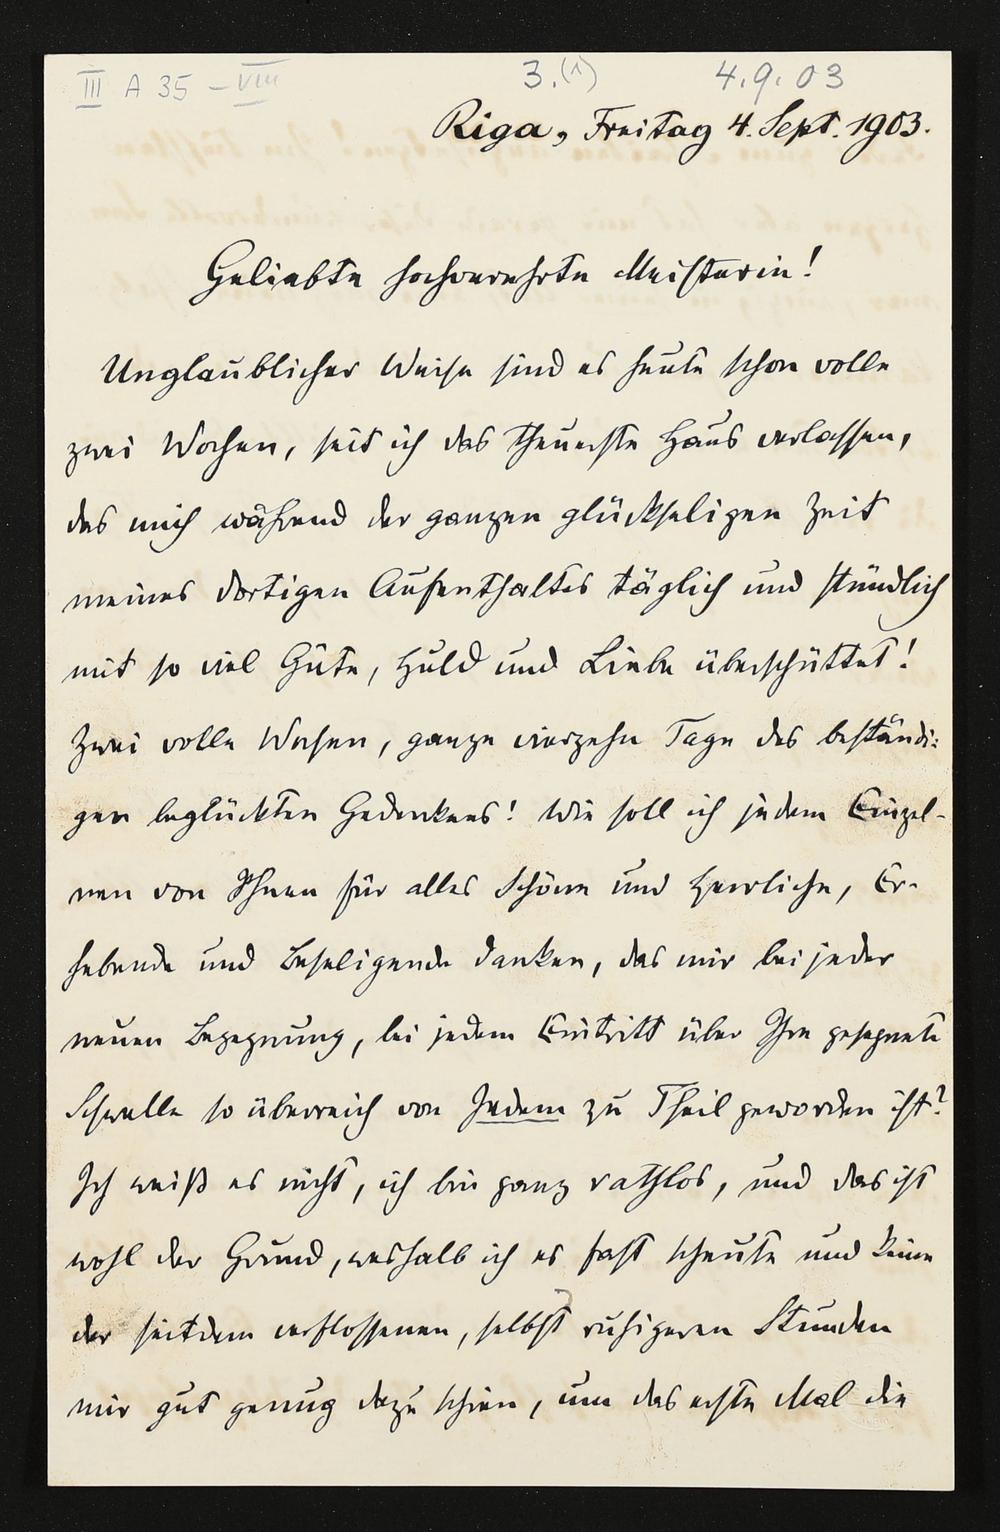 III A 35 – VIII 3.(1) 4.9.03
Riga, Freitag 4. Sept. 1903.
Geliebte hochverehrte Meisterin!
Unglaublicher Weise sind es heute schon volle
zwei Wochen, seit ich das theuerste Haus verlassen,
das mich während der ganzen glückseligen Zeit
meines dortigen Aufenthaltes täglich und stündlich
mit so viel Güte, Huld und Liebe überschüttet!
Zwei volle Wochen, ganze vierzehn Tage des beständi-
gen beglückten Gedenkens! Wie soll ich jedem Einzel-
nen von Ihnen für alles Schöne und Herrliche, Er-
hebende und Beseligende danken, das mir bei jeder
neuen Begegnung, bei jedem Eintritt über Ihre gesegnete
Schwelle so überreich von Jedem zu Theil geworden ist?
Ich weiß es nicht, ich bin ganz rathlos, und das ist
wohl der Grund, weshalb ich es fast scheute und keine
der seitdem verflossenen, selbst ruhigeren Stunden
mir gut genug dazu schien, um das erste Mal die